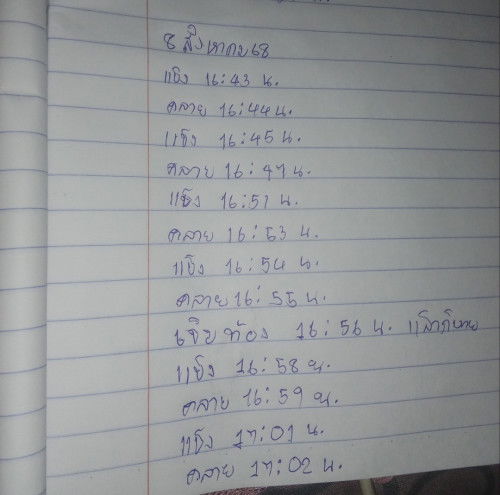 8 สิงหาคม 68
แข็ง 16:43 น.
คลาย 16:44 น.
แข็ง 16:45 น.
คลาย 16:47 น.
แข็ง 16:51 น.
คลาย 16:53 น.
แข็ง 16:54 น.
คลาย 16:55 น.
เจ็บท้อง 16:56 น.
แข็ง 16:58 น.
คลาย 16:59 น.
แข็ง 17:01 น.
คลาย 17:02 น.